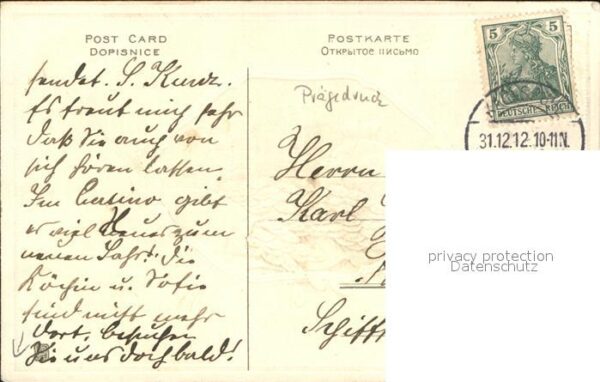 POST CARD
DOPISNICE
POSTKARTE
ОТКРЫТОЕ ПИСЬМО
5
DEUTSCHES REICH
31.12.12.10-11N.
Prägedruck
sendet. S. Kunz.
Es freut mich sehr
daß Sie auch von
sich hören lassen.
Im Casino gibt
es viel Neues zum
neuen Jahr! Die
Köchin u. Sofie
sind nicht mehr
dort, besuchen
Sie uns doch bald!
Herrn
Karl
Schiff
privacy protection
Datenschutz